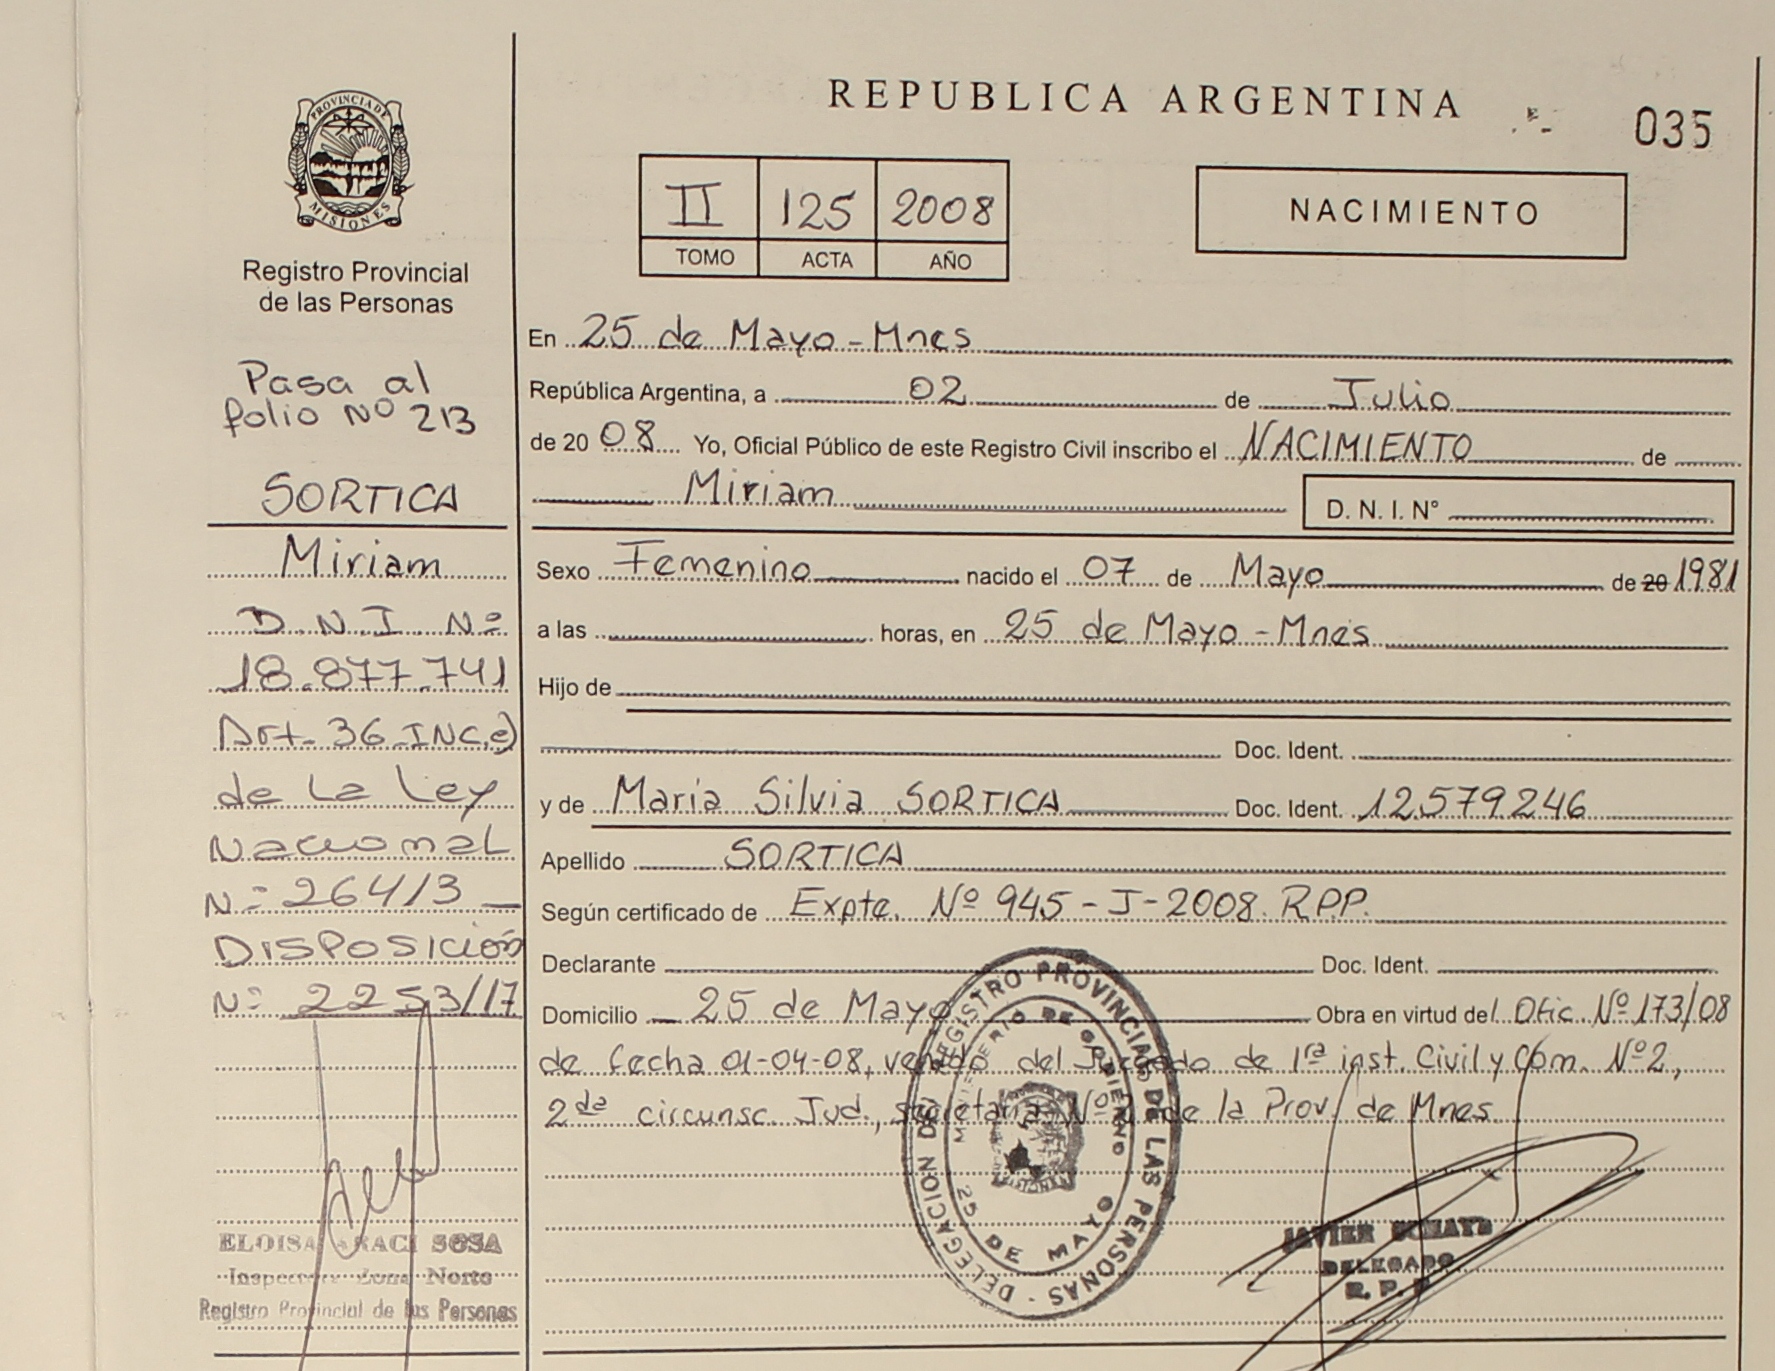 PROVINCIA DE
MISIONES
Registro Provincial
de las Personas
Pasa al
folio Nº 213
SORTICA
Miriam
D.N.I Nº
18.877.741
Art. 36 INC.e)
de La Ley
Nacional
Nº 26413
DISPOSICIÓN
Nº 2253/17
ELOISA ARACI SOSA
Inspectora Zona Norte
Registro Provincial de las Personas
REPUBLICA ARGENTINA
035
II 125 2008
TOMO ACTA AÑO
NACIMIENTO
En 25 de Mayo - Mnes
República Argentina, a 02 de Julio
de 20 08 Yo, Oficial Público de este Registro Civil inscribo el NACIMIENTO de
Miriam D. N. I. N°
Sexo Femenino nacido el 07 de Mayo de 20 1981
a las horas, en 25 de Mayo - Mnes
Hijo de
Doc. Ident.
y de Maria Silvia SORTICA Doc. Ident. 12.579.246
Apellido SORTICA
Según certificado de Expte. Nº 945 - J - 2008. R.P.P.
Declarante Doc. Ident.
Domicilio 25 de Mayo Obra en virtud del Ofic. Nº 173/08
de fecha 01-04-08, venido del Juzgado de 1ra inst. Civil y Com. Nº 2,
2da circunsc. Jud., secretaria Nº de la Prov. de Mnes.
DELEGACION DEL REGISTRO PROVINCIAL DE LAS PERSONAS
MINISTERIO DE GOBIERNO
25 DE MAYO
JAVIER
DELEGADO
R. P. P.